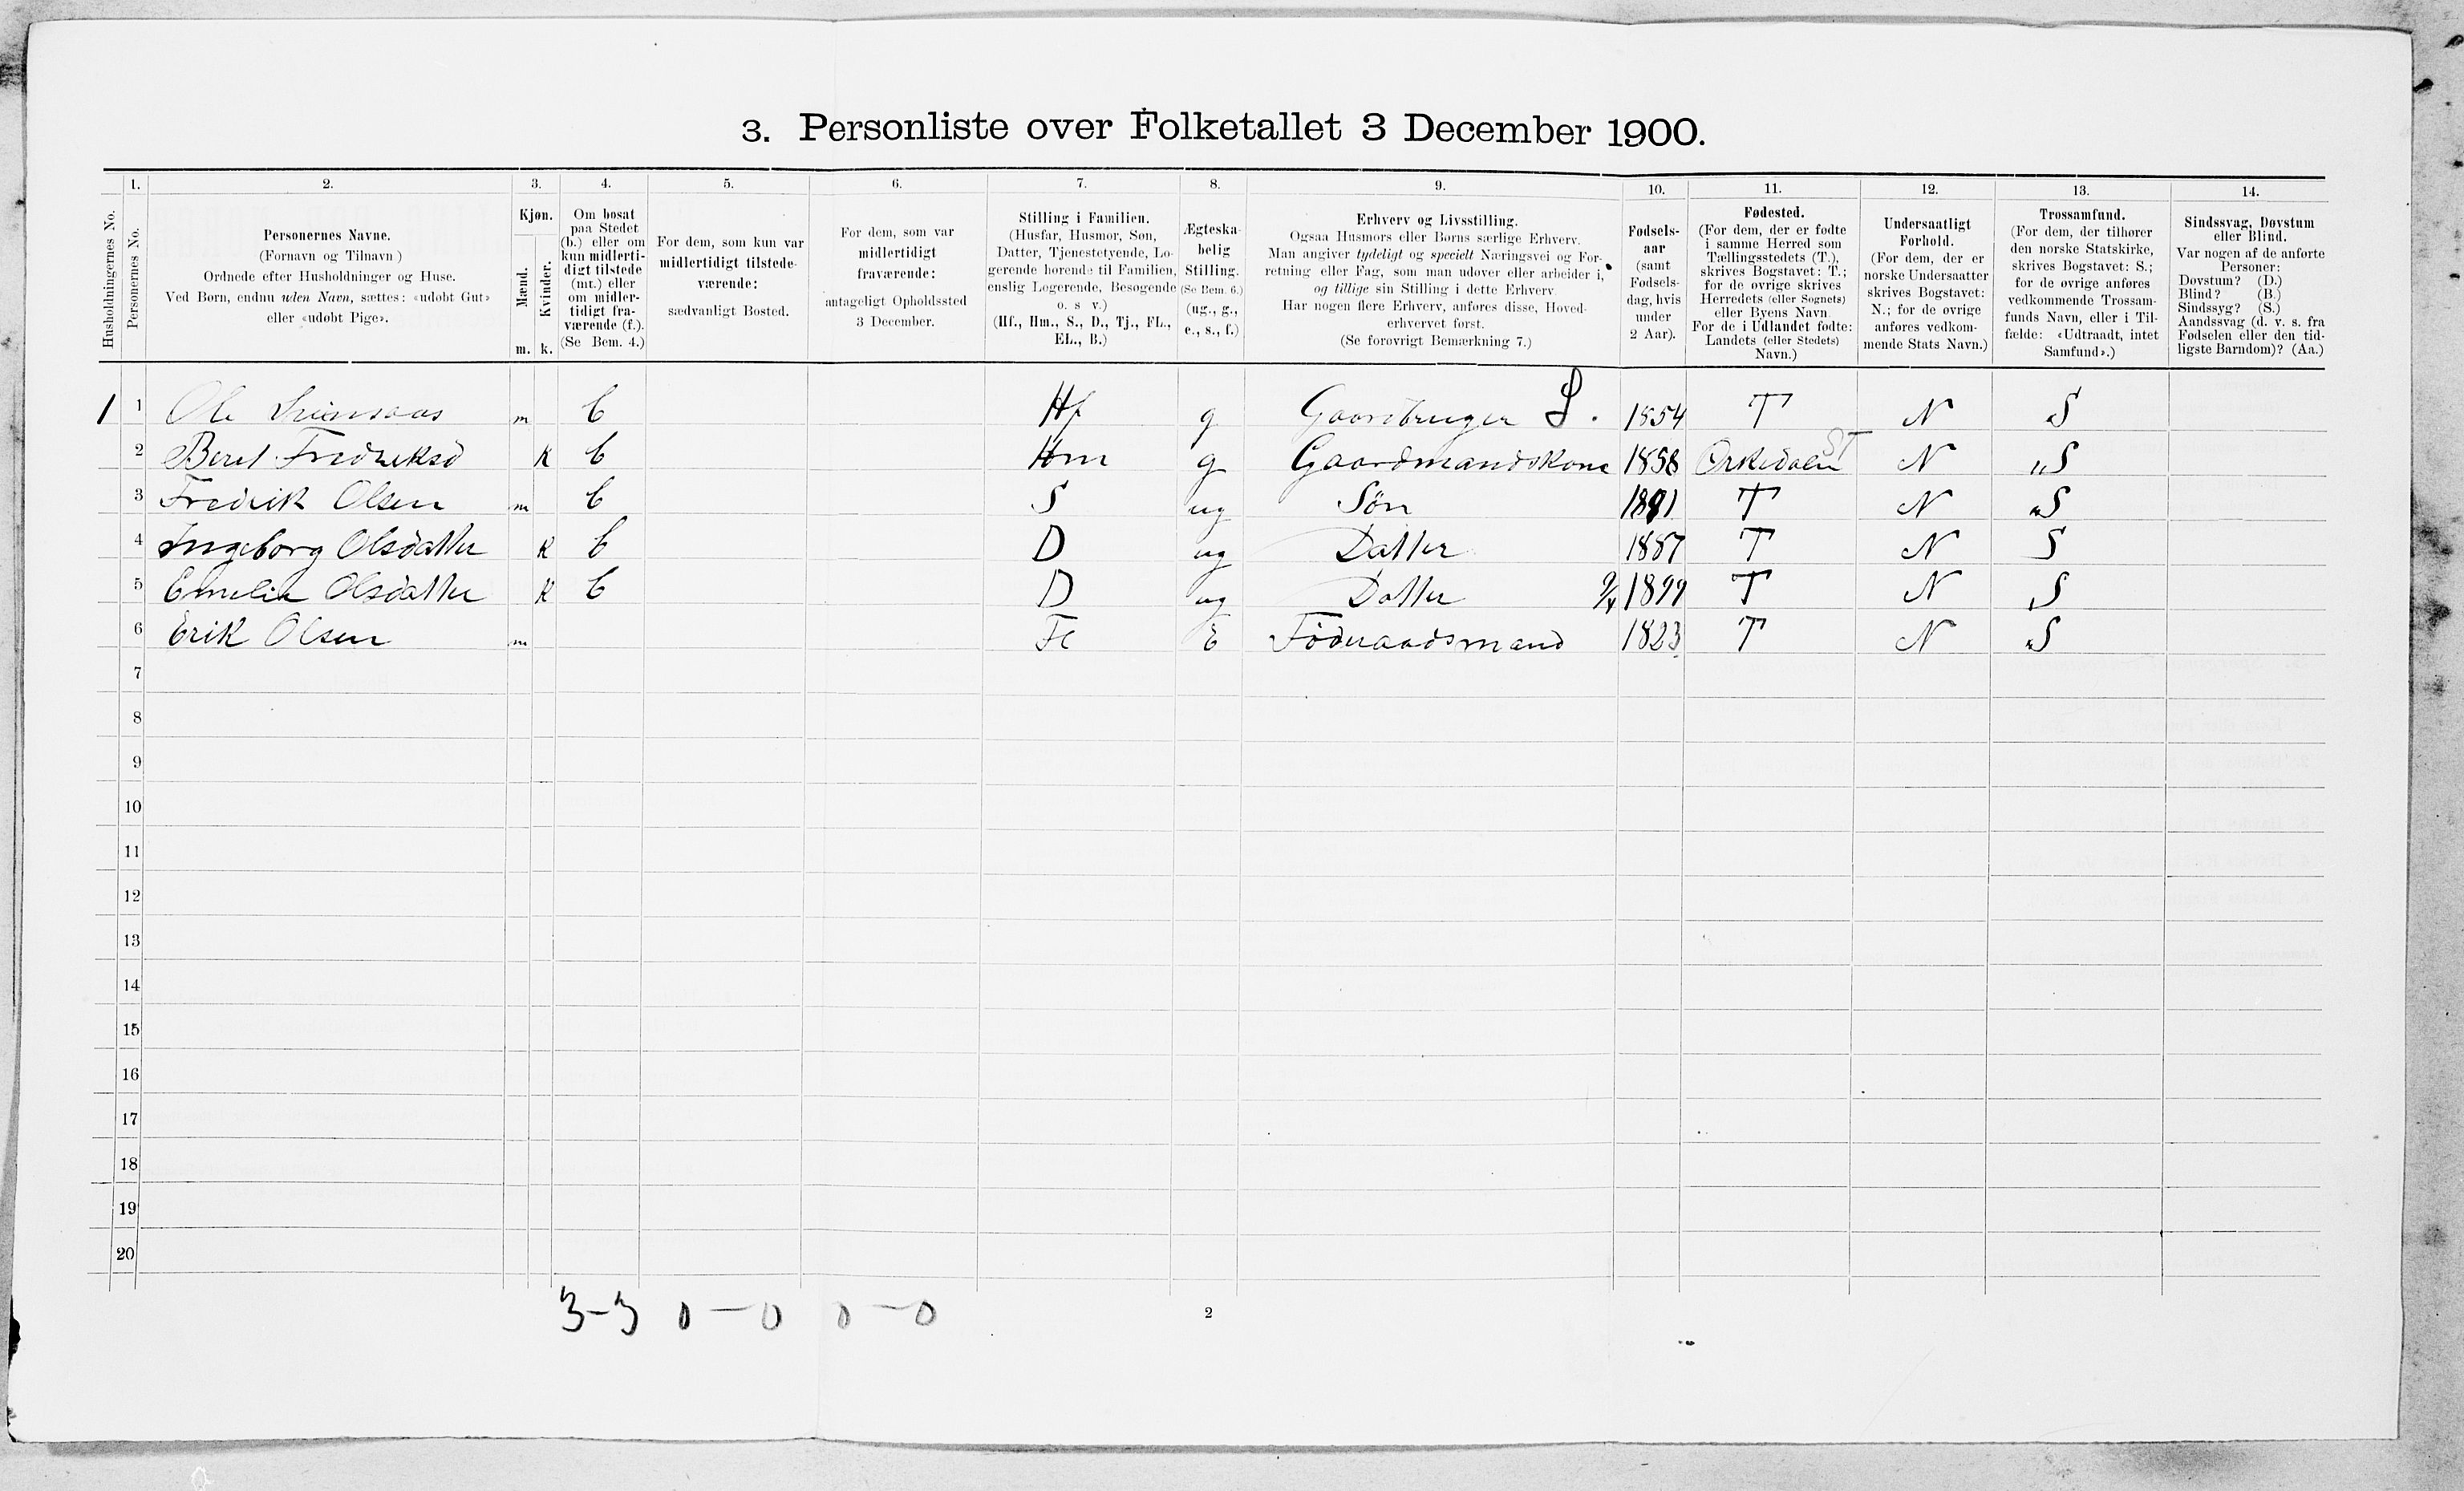 3. Personliste over Folketallet 3 December 1900.
Husholdningernes No.
1.
Personernes No.
2.
Personernes Navne.
(Fornavn og Tilnavn)
Ordnede efter Husholdninger og Huse.
Ved Børn, endnu uden Navn, sættes: «udøbt Gut»
eller «udøbt Pige».
3.
Kjøn.
Mænd.
Kvinder.
m. k.
4.
Om bosat
paa Stedet
(b.) eller om
kun midlerti-
digt tilstede
(mt.) eller
om midler-
tidigt fra-
værende (f.).
(Se Bem. 4.)
5.
For dem, som kun var
midlertidigt tilstede-
værende:
sædvanligt Bosted.
6.
For dem, som var
midlertidigt
fraværende:
antageligt Opholdssted
3 December.
7.
Stilling i Familien.
(Husfar, Husmor, Søn,
Datter, Tjenestetyende, Lo-
gerende hørende til Familien,
enslig Logerende, Besøgende
o. s v.)
(Hf., Hm., S., D., Tj., FL.,
EL., B.)
8.
Ægteska-
belig
Stilling.
(Se Bem. 6.)
(ug., g.,
e., s., f.)
9.
Erhverv og Livsstilling.
Ogsaa Husmors eller Børns særlige Erhverv.
Man angiver tydeligt og specielt Næringsvei og For-
retning eller Fag, som man udøver eller arbeider i,
og tillige sin Stilling i dette Erhverv.
Har nogen flere Erhverv, anføres disse, Hoved-
erhvervet først.
(Se forøvrigt Bemærkning 7.)
10.
Fødsels-
aar
(samt
Fødsels-
dag, hvis
under
2 Aar).
11.
Fødested.
(For dem, der er fødte
i samme Herred som
Tællingsstedets (T.),
skrives Bogstavet: T.;
for de øvrige skrives
Herredets (eller Sognets)
eller Byens Navn
For de i Udlandet fødte:
Landets (eller Stedets)
Navn.)
12.
Undersaatligt
Forhold.
(For dem, der er
norske Undersaatter
skrives Bogstavet:
N.; for de øvrige
anføres vedkom-
mende Stats Navn.)
13.
Trossamfund.
(For dem, der tilhører
den norske Statskirke,
skrives Bogstavet: S.;
for de øvrige anføres
vedkommende Trossam-
funds Navn, eller i Til-
fælde: «Udtraadt, intet
Samfund».)
14.
Sindssvag, Døvstum
eller Blind.
Var nogen af de anførte
Personer:
Døvstum? (D.)
Blind? (B.)
Sindssyg? (S.)
Aandssvag (d. v. s. fra
Fødselen eller den tid-
ligste Barndom)? (Aa.)
1 1 Ole m b Hf g Gaardbruger S. 1854 T N S
2 Beret Fredriksd k b Hm g Gaardmandskone 1858 Orkedalen ST N S
3 Fredrik Olsen m b S ug Søn T N S
4 Ingeborg Olsdatter k b D ug Datter 1887 T N S
5 Emelia Olsdatter k b D ug Datter 1899 T N S
6 Erik Olsen m Fl E Føderaadsmand 1823 T N S
7
8
9
10
11
12
13
14
15
16
17
18
19
20
3-3 0-0 0-0
2